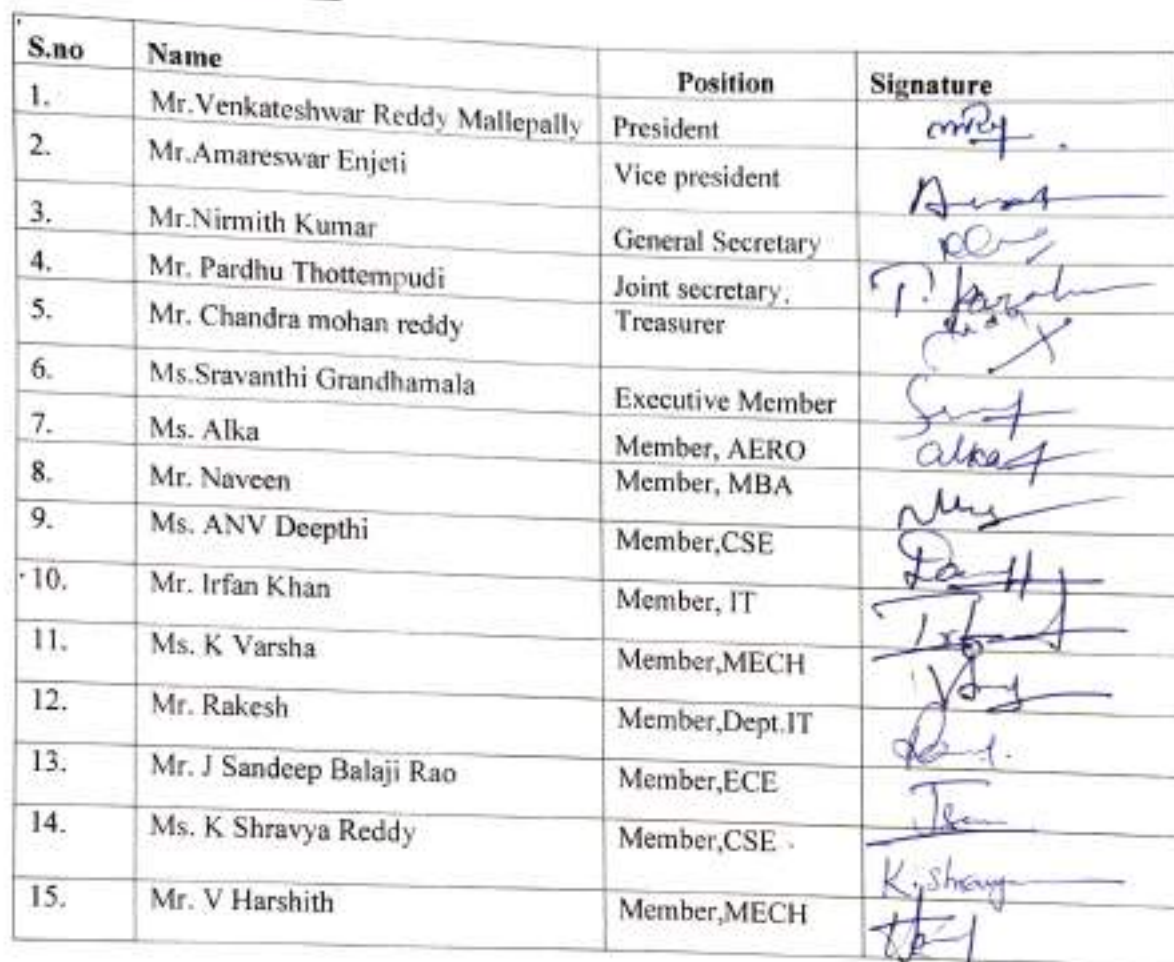 S.no Name Position Signature
1. Mr.Venkateshwar Reddy Mallepally President
2. Mr.Amareswar Enjeti Vice president
3. Mr.Nirmith Kumar General Secretary
4. Mr. Pardhu Thottempudi Joint secretary,
5. Mr. Chandra mohan reddy Treasurer
6. Ms.Sravanthi Grandhamala Executive Member
7. Ms. Alka Member, AERO alka
8. Mr. Naveen Member, MBA
9. Ms. ANV Deepthi Member,CSE
10. Mr. Irfan Khan Member, IT
11. Ms. K Varsha Member,MECH
12. Mr. Rakesh Member,Dept.IT
13. Mr. J Sandeep Balaji Rao Member,ECE
14. Ms. K Shravya Reddy Member,CSE
15. Mr. V Harshith Member,MECH